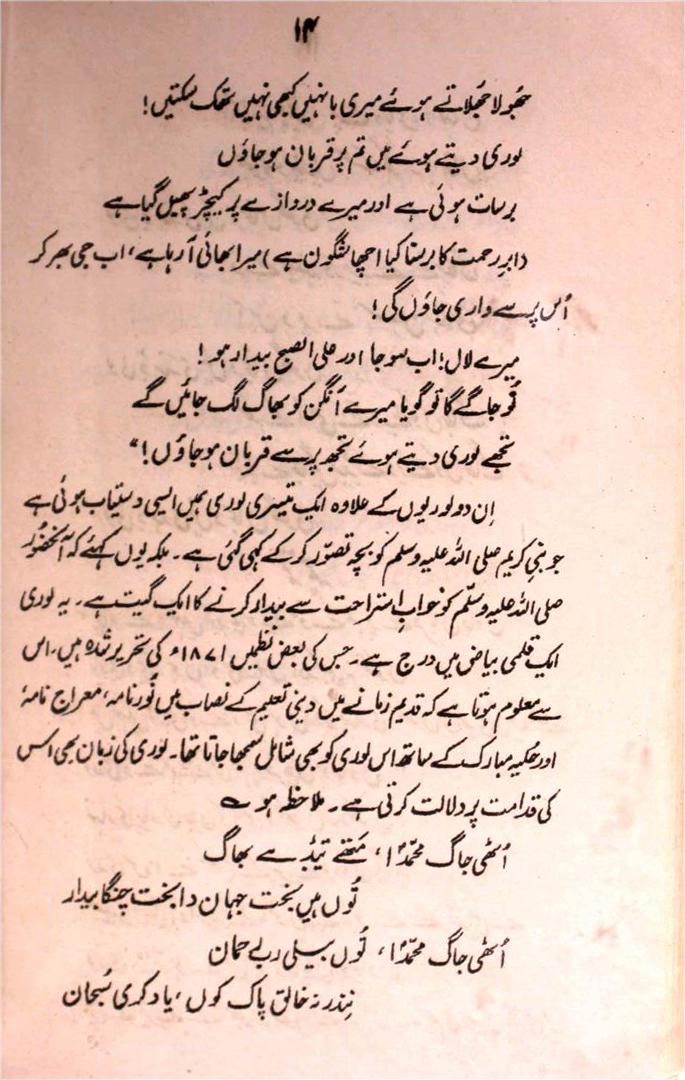 ۱۴
جھولا جھلاتے ہوئے میری بانہیں کبھی نہیں تھک سکتیں!
لوری دیتے ہوئے میں تم پر قربان ہو جاؤں
برسات ہوئی ہے اور میرے دروازے پر کیچڑ پھیل گیا ہے
(ابرِ رحمت کا برسنا کیا اچھا شگون ہے) میرا بھائی آ رہا ہے، اب جی بھر کر
اُس پر سے واری جاؤں گی!
میرے لال! اب سو جا اور علی الصبح بیدار ہو!
تُو جاگے گا تو گویا میرے آنگن کو بھاگ لگ جائیں گے
تجھے لوری دیتے ہوئے تجھ پر سے قربان ہو جاؤں!"
اِن دو لوریوں کے علاوہ ایک تیسری لوری ہمیں ایسی دستیاب ہوئی ہے
جو نبی کریم صلی اللہ علیہ وسلم کو بچہ تصوّر کر کے کہی گئی ہے۔ بلکہ یوں کہئے کہ آنحضُور
صلی اللہ علیہ وسلّم کو خوابِ استراحت سے بیدار کرنے کا ایک گیت ہے۔ یہ لوری
ایک قلمی بیاض میں درج ہے۔ جس کی بعض نظمیں ۱۸۷۱ء کی تحریر شدہ ہیں۔ اس
سے معلوم ہوتا ہے کہ قدیم زمانے میں دینی تعلیم کے نصاب میں نُور نامہ، معراج نامہ
اور حکیہ مبارک کے ساتھ اس لوری کو بھی شامل سمجھا جاتا تھا۔ لوری کی زبان بھی اس
کی قدامت پر دلالت کرتی ہے۔ ملاحظہ ہو ؎
اُٹھی جاگ محمّدؐا، مَتھے تیڈے بھاگ
تُوں ہیں بخت جہان دا بخت چنگا بیدار
اُٹھی جاگ محمّدؐا، تُوں بیلی ربِ رحمان
نِندر نہ خالق پاک کوں، یاد کری سُبحان